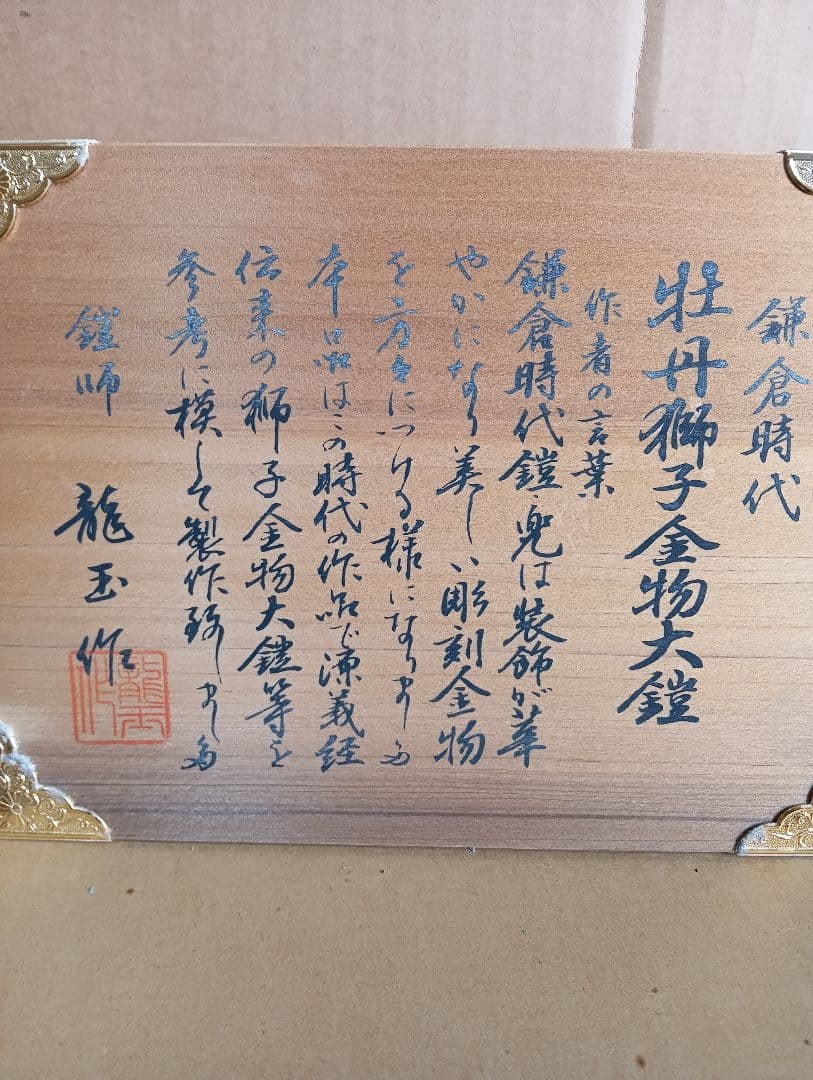 鎌倉時代
牡丹獅子金物大鎧
作者の言葉
鎌倉時代鎧、兜は装飾が華
やかになり美しい彫刻金物
を方々につける様になりました
本品はこの時代の作品で源義経
伝来の獅子金物大鎧等を
参考に模して製作致しました
鎧師 龍玉作
龍玉作